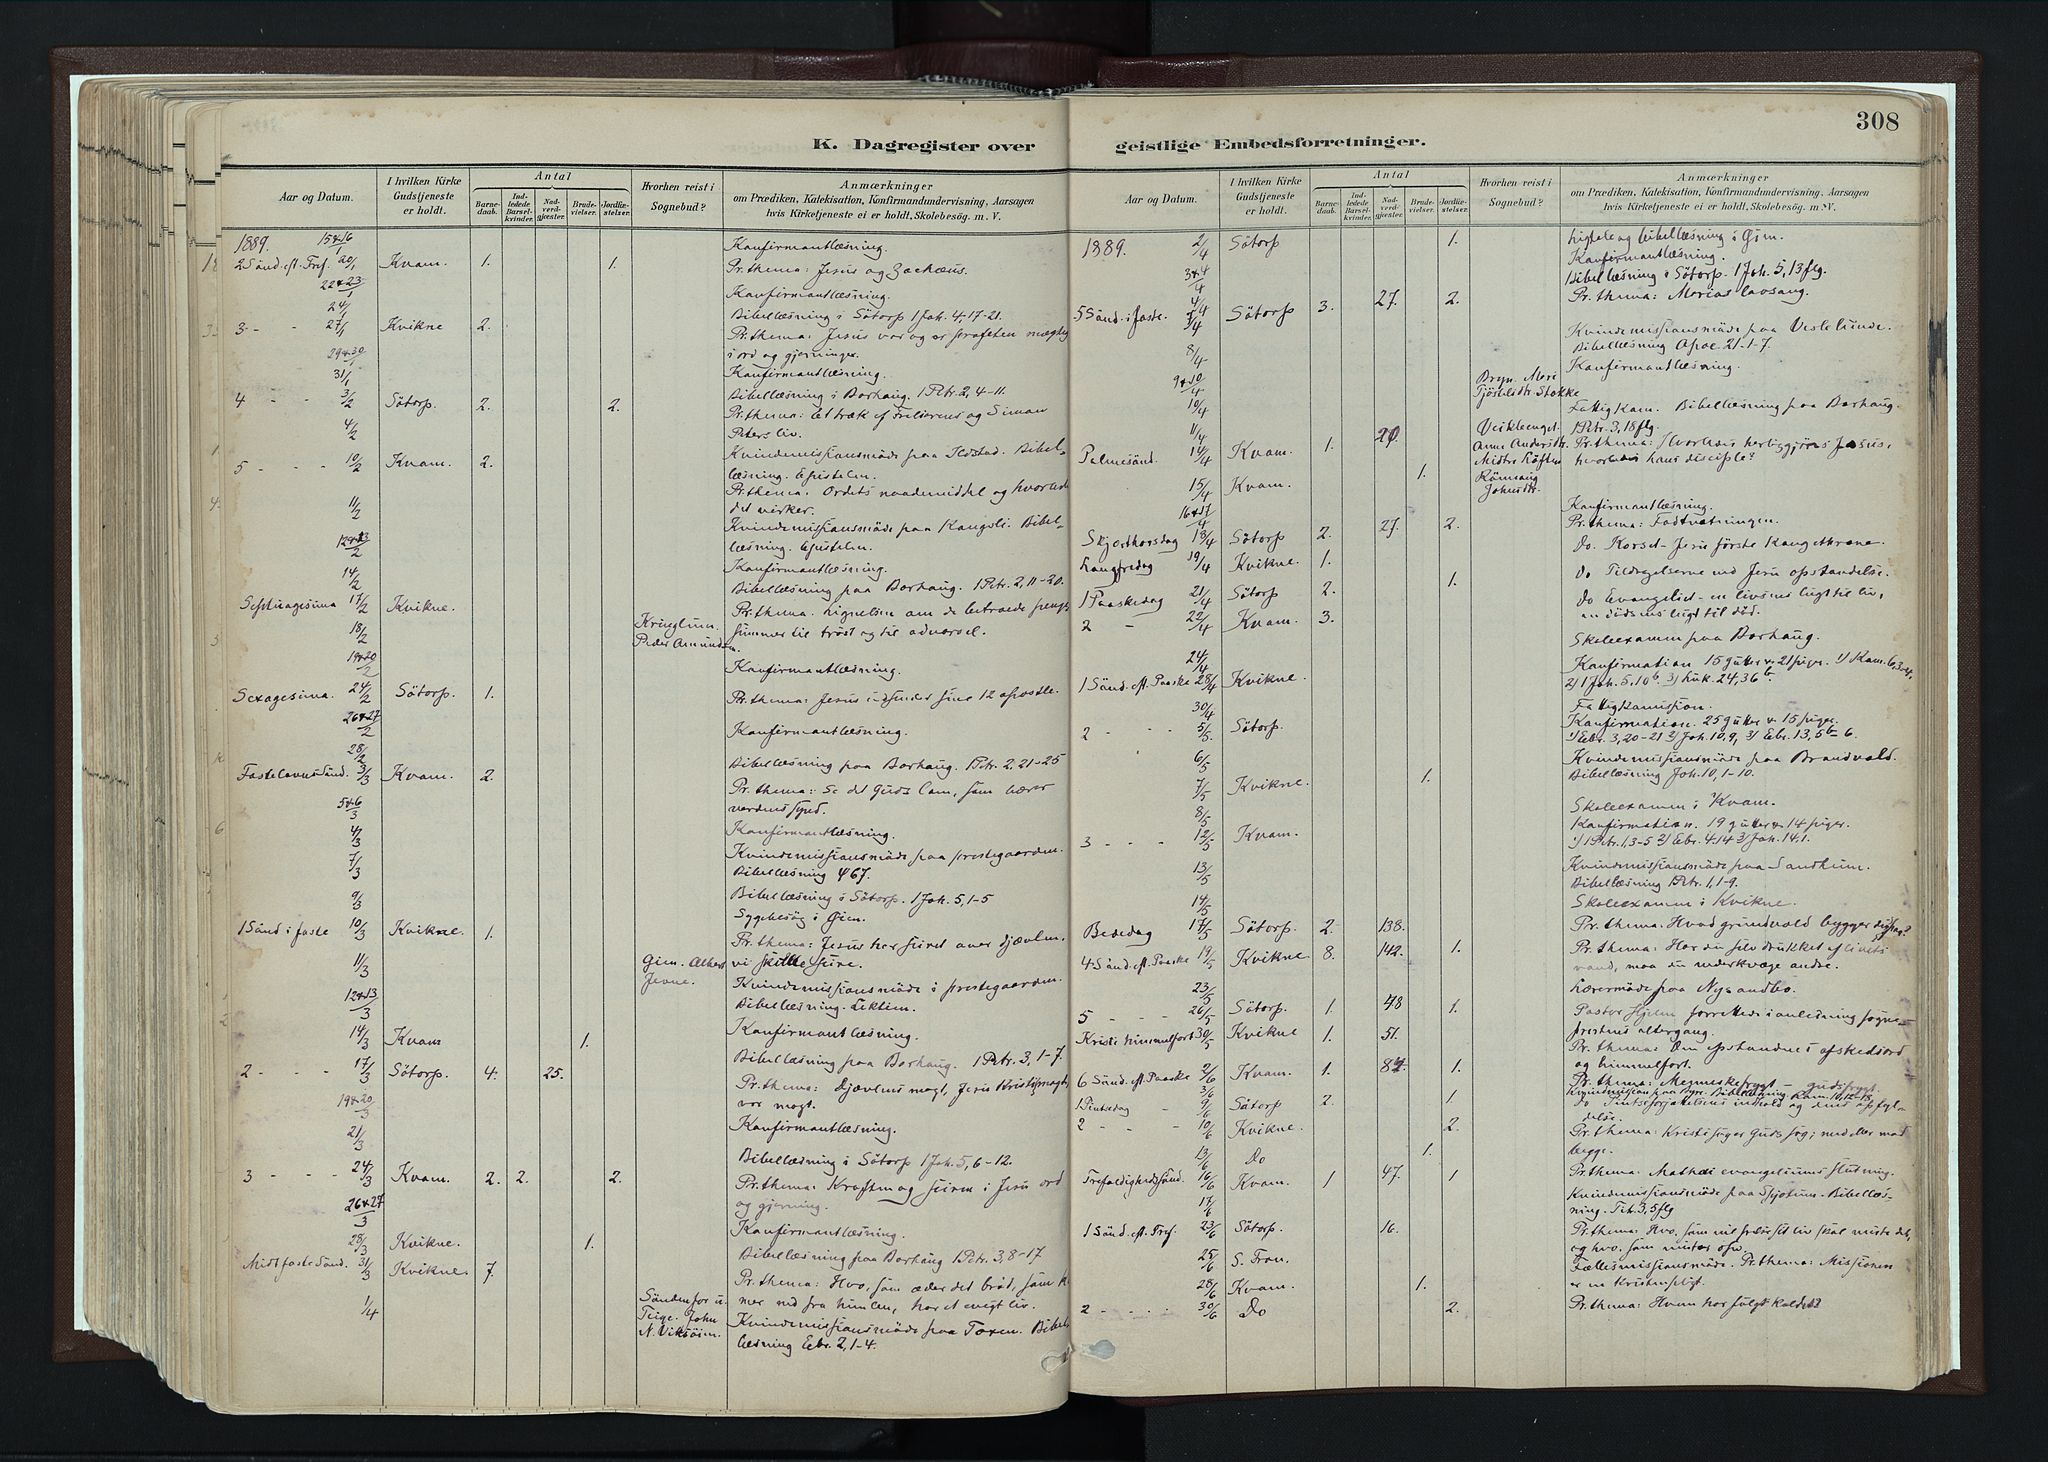 308
K. Dagregister over
geistlige Embedsforretninger.
Aar og Datum.
I hvilken Kirke
Gudstjeneste
er holdt.
Antal
Barne-
daab.
Ind-
ledede
Barsel-
kvinder.
Nad-
verd-
gjester.
Brude-
vielser.
Jordfæ-
stelser.
Hvorhen reist i
Sognebud?
Anmærkninger
om Prædiken, Katekisation, Konfirmandundervisning, Aarsagen
hvis Kirketjeneste ei er holdt, Skolebesøg. m. V.
1889. 15&16/1 Konfirmantlæsning.
2 Sönd. eft. Tref. 20/1 Kvam. 1. 1. Pr. thema: Jesus og Zachæus.
22&23/1 Konfirmantlæsning.
24/1 Bibellæsning i Sötorp 1 Joh. 4, 17-21.
3 - - 27/1 Kvikne 2. Pr. thema: Jesus var og er profeten mægtig
i ord og gjerninger.
29&30/1 Konfirmantlæsning.
31/1 Bibellæsning i Borhaug. 1 Petr. 2, 4-11.
4 - - 3/2 Sötorp. 2. 2. Pr. thema: Et træk af troslivet og Simon
Peters liv.
4/2 Kvindemissionsmöde paa Ildstad. Bibel-
læsning. Epistelen.
5 - - - 10/2 Kvam. 2. Pr. thema: Ordets naademiddel og hvorledes
det virker.
11/2 Kvindemissionsmöde paa Kongsli. Bibel-
læsning. Epistelen.
12&13/2 Konfirmantlæsning.
14/2 Bibellæsning paa Borhaug. 1 Petr. 2, 11-20.
Septuagesima 17/2 Kvikne. Pr. thema. Lignelsen om de betroede penge
summer til tröst og til advarsel.
18/2 Kringlum.
Peder Amundsen.
19&20/2 Konfirmantlæsning.
Sexagesima. 24/2 Sötorp. 1. Pr. thema: Jesus udsender sine 12 apostle.
26&27/2 Konfirmantlæsning.
28/2 Bibellæsning paa Borhaug. 1 Petr. 2, 21-25
Fastelavnssönd. 3/3 Kvam. 2. Pr. thema: Se det Guds Lam, som bærer
verdens synd.
5&6/3 Konfirmantlæsning.
4/3 Kvindemissionsmöde paa prestegaarden.
Bibellæsning 467.
7/3 Bibellæsning i Sötorp. 1 Joh. 5, 1-5
9/3 Sygebesög i Gien.
1 Sönd i faste 10/3 Kvikne. 1. Pr. thema: Jesus har seiret over djævlen,
vi skulle seire.
11/3 Kvindemissionsmöde i prestegaarden.
Bibellæsning. Lektien.
12&13/3 Konfirmantlæsning.
14/3 Kvam 1. Bibellæsning paa Borhaug. 1 Petr. 3, 1-7.
2 - - - 17/3 Sötorp. 4. 25. Pr. thema: Djævlens magt, Jesu Kristi magt,
vor magt.
19&20/3 Konfirmantlæsning.
21/3 Bibellæsning i Sötorp 1 Joh. 5, 6-12.
3 - - - 24/3 Kvam. 2. 2. 2. Pr. thema: Kraften og seiren i Jesu ord
og gjerning.
26&27/3 Konfirmantlæsning.
28/3 Kvikne. 1. Bibellæsning paa Borhaug 1 Petr. 3, 8-17
Midtfastesönd. 31/3 Kvikne 7. Pr. thema: Hvo, som æder det bröd, som k
mer ned fra himlen, har et evigt liv.
1/4 Kvindemissionsmöde paa Toxen. Bibel-
læsning Ebr. 2, 1-4.
Aar og Datum.
I hvilken Kirke
Gudstjeneste
er holdt.
Antal
Barne-
daab.
Ind-
ledede
Barsel-
kvinder.
Nad-
verd-
gjester.
Brude-
vielser.
Jordfæ-
stelser.
Hvorhen reist i
Sognebud?
Anmærkninger
om Prædiken, Katekisation, Konfirmandundervisning, Aarsagen
hvis Kirketjeneste ei er holdt, Skolebesøg. m. V.
1889. 2/4 Sötorp 1. Ligtale og bibellæsning i Gien.
3&4/4 Konfirmantlæsning.
4/4 Bibellæsning i Sötorp. 1 Joh. 5, 13 flg.
5 Sönd. i faste. 7/4 Sötorp 3. 27. 2. Pr. thema: Marias lovsang.
8/4 Kvindemissionsmöde paa Veslelunde.
Bibellæsning Apoc. 21-1-7.
9&10/4 Konfirmantlæsning.
10/4 Fattigkom. Bibellæsning paa Borhaug.
11/4 1 Petr. 3, 18 flg.
Palmesönd. 14/4 Kvam. 1. 20. Pr. thema: Hvorledes herliggjöres Jesus,
hvorledes hans disciple?
15/4 Kvam. 1.
16&17/4 Konfirmantlæsning.
Skjærthorsdag 18/4 Sötorp 2. 27. 2. Pr. thema: Fodtvætningen.
Langfredag 19/4 Kvikne. 1. Do. Korset - Jesu förste kongethrone.
1 Paaskedag 21/4 Sötorp 2. 1. Do Tildragelserne ved Jesu opstandelse.
2 - 22/4 Kvam. 3. Do Evangeliet - en livsens lugt til liv,
en dödsens lugt til död.
24/4 Skoleexamen paa Borhaug.
1 Sönd. eft. Paaske 28/4 Kvikne. Konfirmation 15 gutter & 21 piger. 1) Rom. 6, 3-4,
2) 1 Joh. 5, 10b 3) Luk. 24, 36b.
30/4 Fattigkomission.
2 - - - 5/5. Sötorp. Konfirmation. 25 gutter & 15 piger.
1) Ebr. 3, 20-21 2) Joh. 10, 9, 3) Ebr. 13, 5b-6.
6/5 Kvindemissionsmöde paa Brandvold.
Bibellæsning Joh. 10, 1-10.
7/5 Kvikne. 1.
8/5 Skoleexamen i Kvam.
3 - - - 12/5 Kvam. Konfirmation. 19 gutter & 14 piger.
1) 1 Petr. 1, 3-5 2) Ebr. 4. 14 3) Joh. 14, 1.
13/5 Kvindemissionsmöde paa Sandheim.
Bibellæsning 1 Petr. 1, 1-9.
14/5 Skoleexamen i Kvikne.
Bededag 17/5 Sötorp. 2. 138. Pr. thema: Hvad grundvold bygger du paa?
4 Sönd. eft. Paaske 19/5 Kvikne 8. 142. 1. Pr. thema: Har du selv drukket af livets
vand, maa du underkvæge andre.
23/5 Lærermöde paa Nysandbo.
5 - - - 26/5 Sötorp. 1. 48 1. Pastor Hjelm forrettede i anledning sogne-
prestens altergang.
Kristi himmelfart 30/5 Kvikne 1. 51. Pr. thema: Den opstandnes afskedsord
og himmelfart.
6 Sönd. eft. Paaske 2/6 Kvam. 1. 84. 1. Pr. thema: Menneskefrygt - gudsfrygt.
3/6 Kvindemission paa Byre. Bibellæsning. Rom. 10, 12-18.
1 Pintsedag - 9/6 Sötorp 2. 1. Do Pintseforjættelsens indhold og dens opfyl-
delse.
2 - - - 10/6 Kvikne. 2. Pr. thema: Kristi seger Guds sög; med eller mod
begge.
13/6 Do 1.
Trefoldighedssönd. 16/6 Kvam. 1 47. 1 Pr. thema: Mathæi evangeliums slutning.
17/6 Kvindemissionsmöde paa Skjotum. Bibellæs-
ning. Tit. 3, 5 flg
1 Sönd. eft. Tref. 23/6 Sötorp. 16. Pr. thema: Hvo, som vil frelse sit liv skal miste det,
og hvo. som mister osv.
25/6 S. Fron. Fællesmissionsmöde. Pr. thema: Missionen
er en Kristenpligt.
28/6 Kvam. 1.
2 - - - 30/6 Do 2. Pr. thema: Hvem har fulgt kaldet?
Gien. Albert
Jevne.
Sönden for u.
Teige. John
N. Viksöien.
Bryn. Mari
Tjöstelsdtr. Stokke
Veikleenget.
Anne Andersdtr.
Midtre Löften
Rönnaug
Johnsdtr.